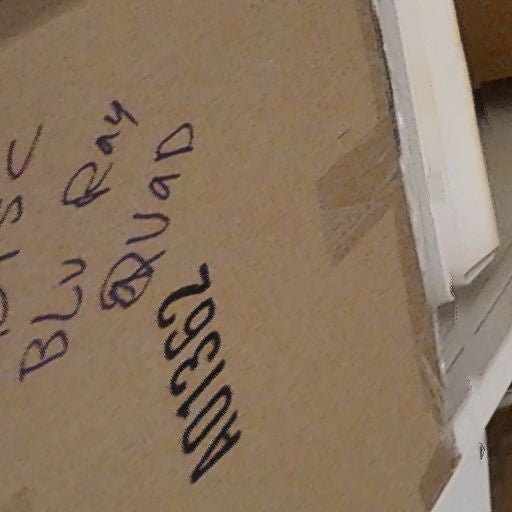 DISC
BLU Ray
QUAD
A01362